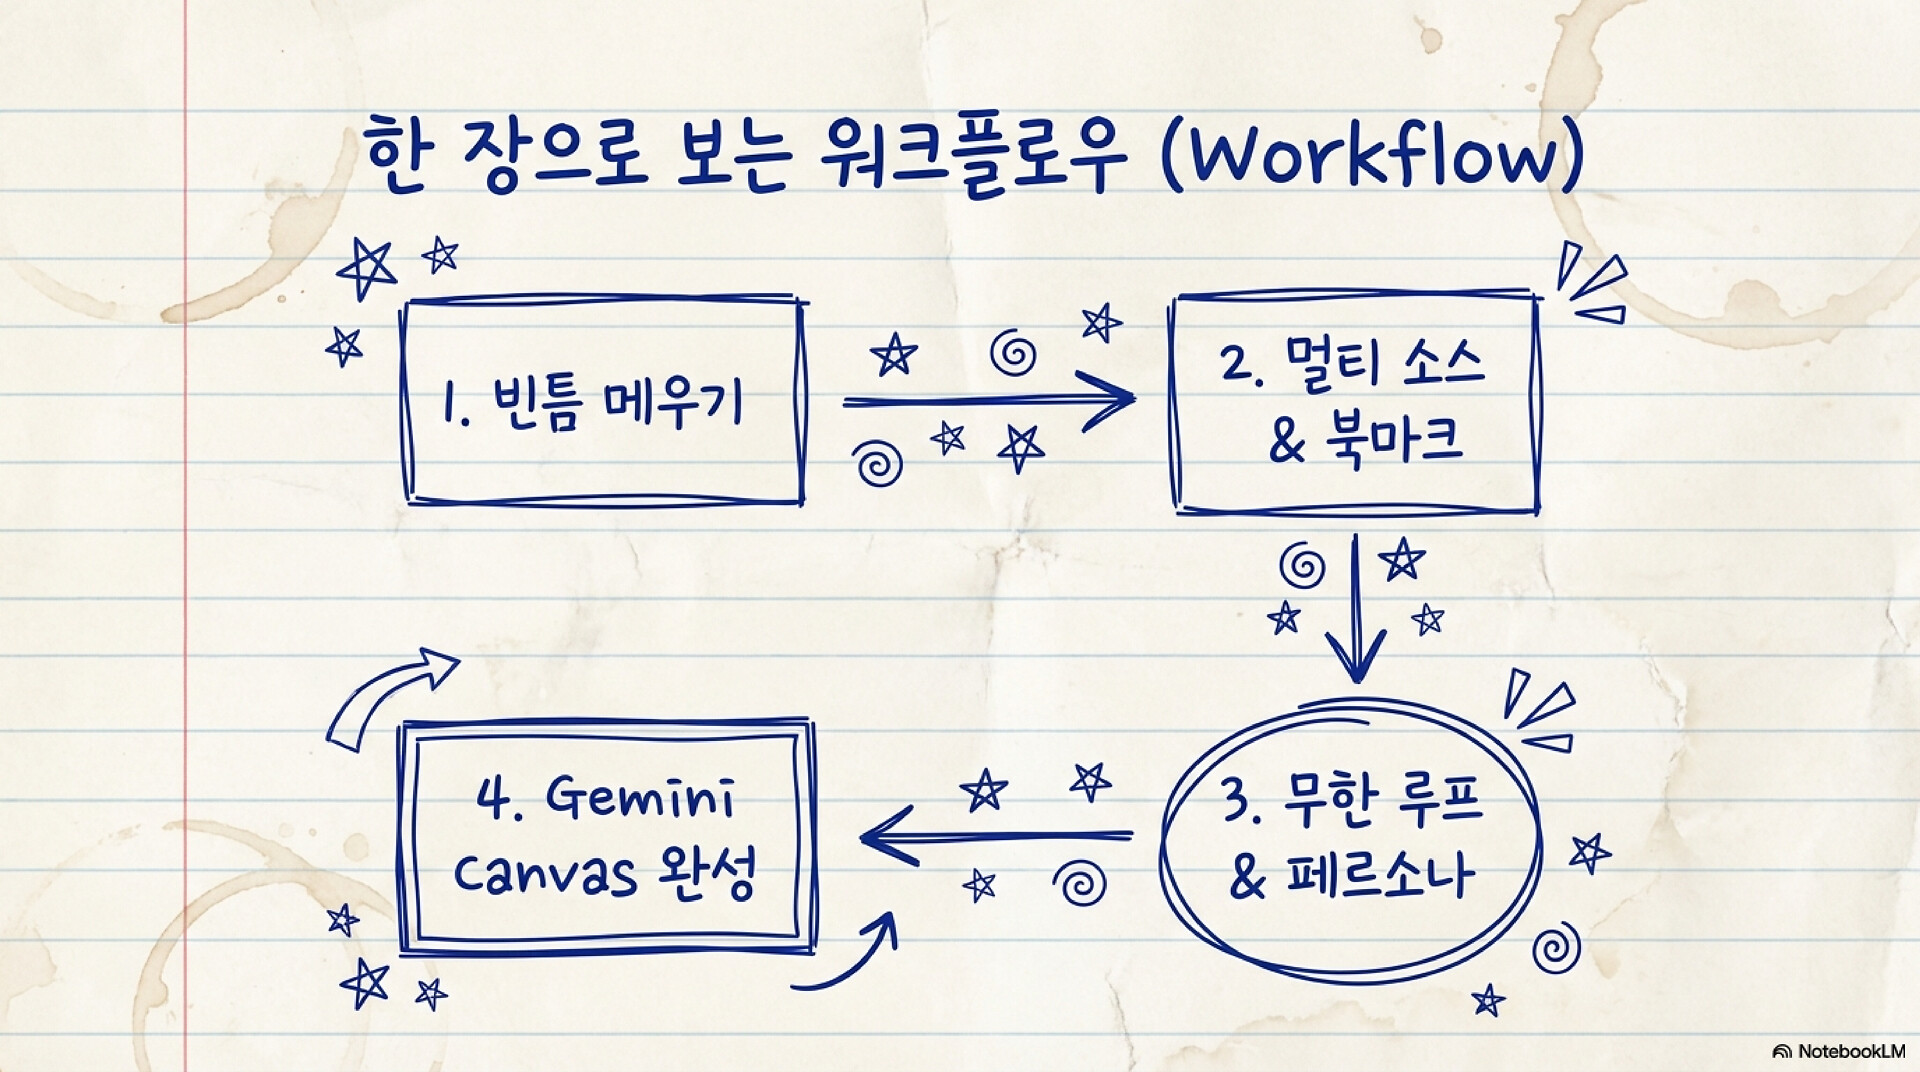 한 장으로 보는 워크플로우 (Workflow)
1. 빈틈 메우기
2. 멀티 소스
& 북마크
3. 무한 루프
& 페르소나
4. Gemini
Canvas 완성
NotebookLM